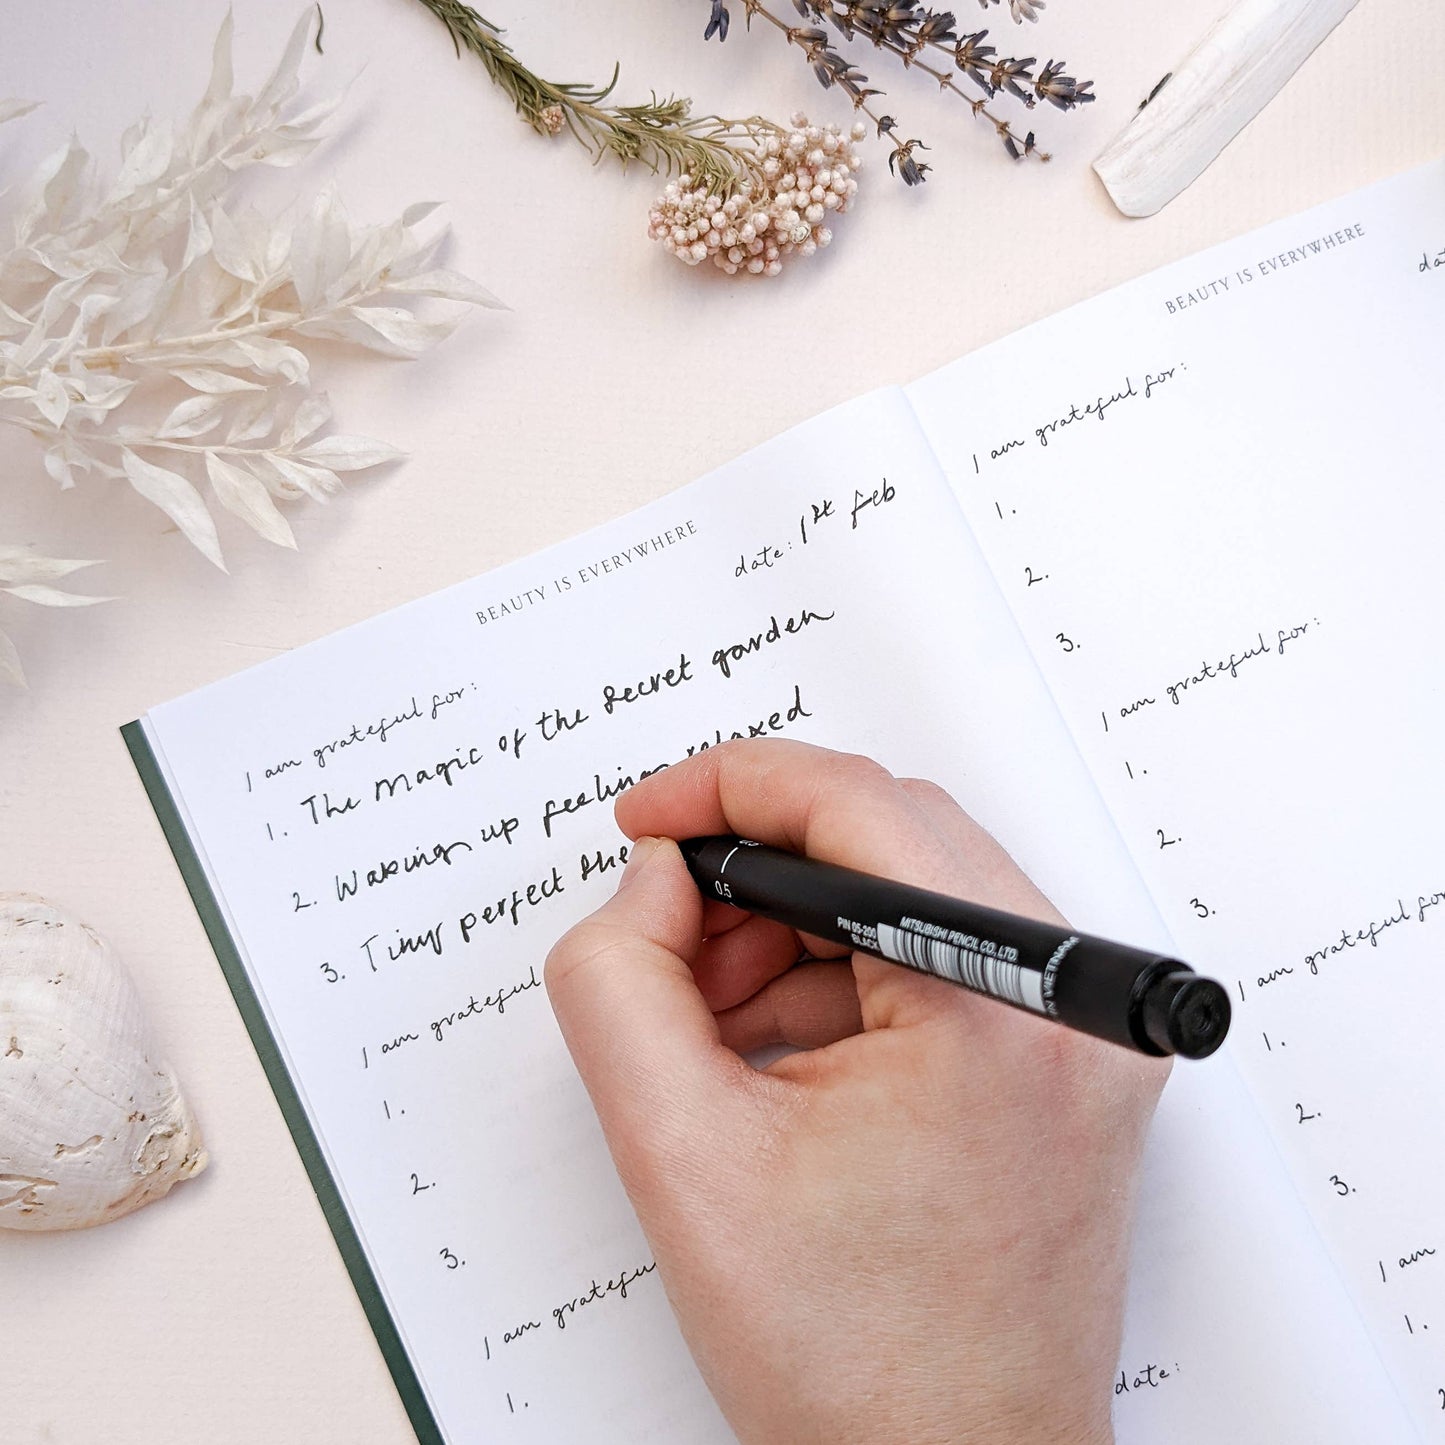 BEAUTY IS EVERYWHERE
date: 1st feb
I am grateful for:
1. The magic of the secret garden
2. Waking up feeling relaxed
3. Tiny perfect she
I am grateful
1.
2.
3.
I am gratefu
1.
date:
BEAUTY IS EVERYWHERE
da
I am grateful for:
1.
2.
3.
I am grateful for:
1.
2.
3.
I am grateful for
1.
2.
3.
I am
1.
2
0.5
PIN 05-200
BLACK
MITSUBISHI PENCIL CO. LTD.
IN VIETNAM